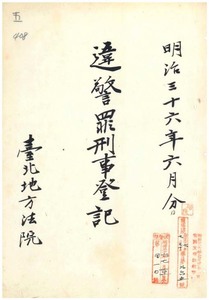 明治三十六年六月分
違警罪刑事登記
臺北地方法院
五
408